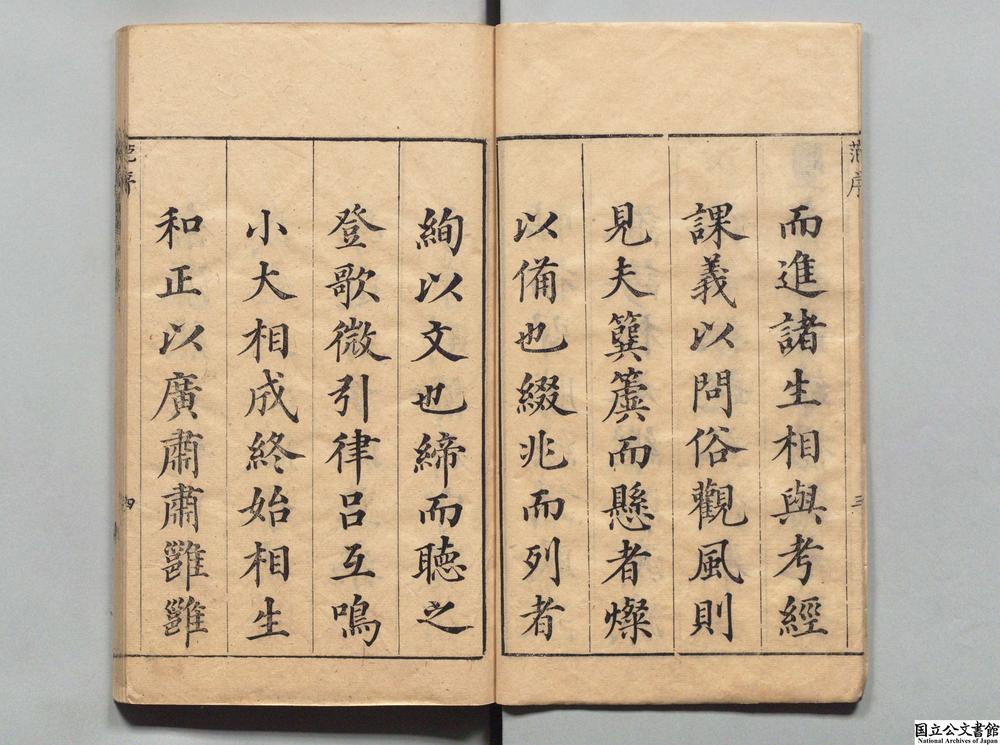 而進諸生相與考經
課義以問俗觀風則
見夫簨簴而懸者燦
以備也綴兆而列者
絢以文也締而聽之
登歌微引律呂互鳴
小大相成終始相生
和正以廣肅肅雝雝
序
三
序
四
国立公文書館
National Archives of Japan